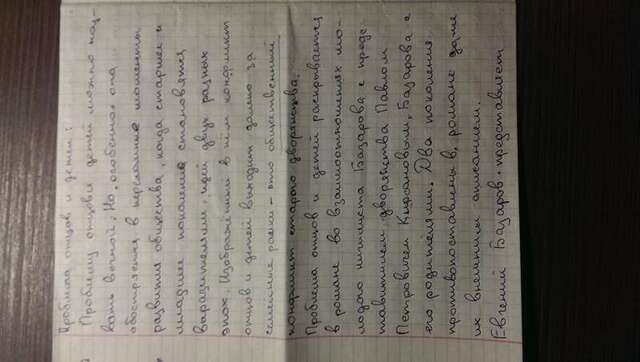 Проблема отцов и детей:
Проблему отцов и детей можно наз-
вать вечной. Но особенно она
обостряется в переломные моменты
развития общества, когда старшее и
младшее поколение становятся
выразителями идей двух разных
эпох. Изображённый в нём конфликт
отцов и детей выходит далеко за
семейные рамки - это общественный
конфликт старого дворянства.
Проблема отцов и детей раскрывается
в романе во взаимоотношениях мо-
лодого нигилиста Базарова с предс-
тавителем дворянства Павлом
Петровичем Кирсановым, Базарова с
его родителями. Два поколения
противопоставлены в романе даже
их внешним описанием.
Евгений Базаров представляет